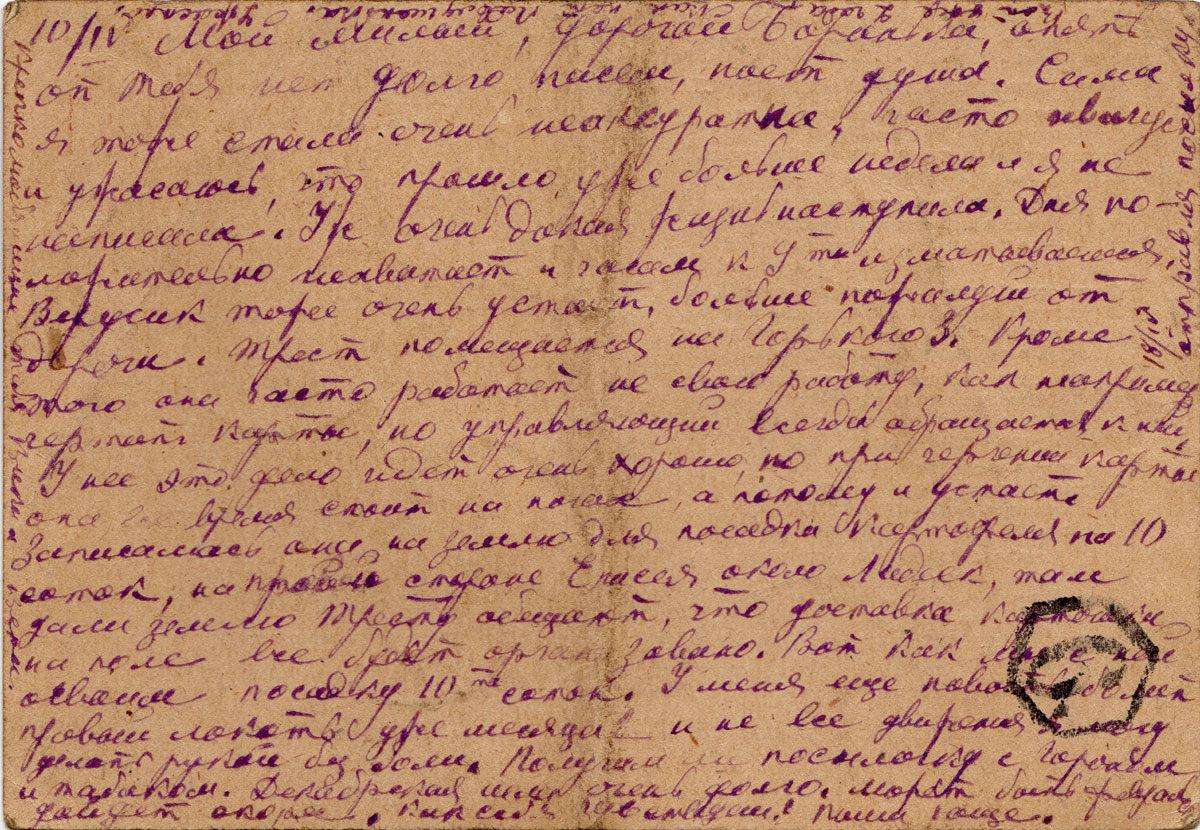 10/IV Мой милый, дорогой Боринька, опять
от тебя нет долго писем, ноет душа. Сама
я тоже стала очень неаккуратна, часто
и ужасаюсь, что прошло уже больше недели и я не
написала. Уж очень дикая жизнь наступила. Дня по-
ложительно нехватает и часам к 9 ти изматываешься.
Верусик тоже очень устает, больше пожалуй от
дороги. Трест помещается на Горького 3. Кроме
этого она часто работает не свою работу, как например
чертит карты, но управляющий всегда обращается к ней.
У нее это дело идет очень хорошо, но при черчении карты
она все время стоит на ногах, а потому и устает.
Записалась она на землю для посадки картофеля на 10
соток, на правой стороне Енисея около Лидеек, там
дали землю Тресту обещают, что доставка картошки
на поле все будет организовано. Вот как мы с ней
осилим посадку 10 ти соток. У меня еще болит
правый локоть уже месяца 2 и не все движения я могу
делать рукой без боли. Получил ли посылочку с
и табаком. Декабрьская шла очень долго. Может быть
дойдет скорее. Как себя чувствуешь? Пиши чаще.
Крепко любящие тебя
18/IV отправляю посылку